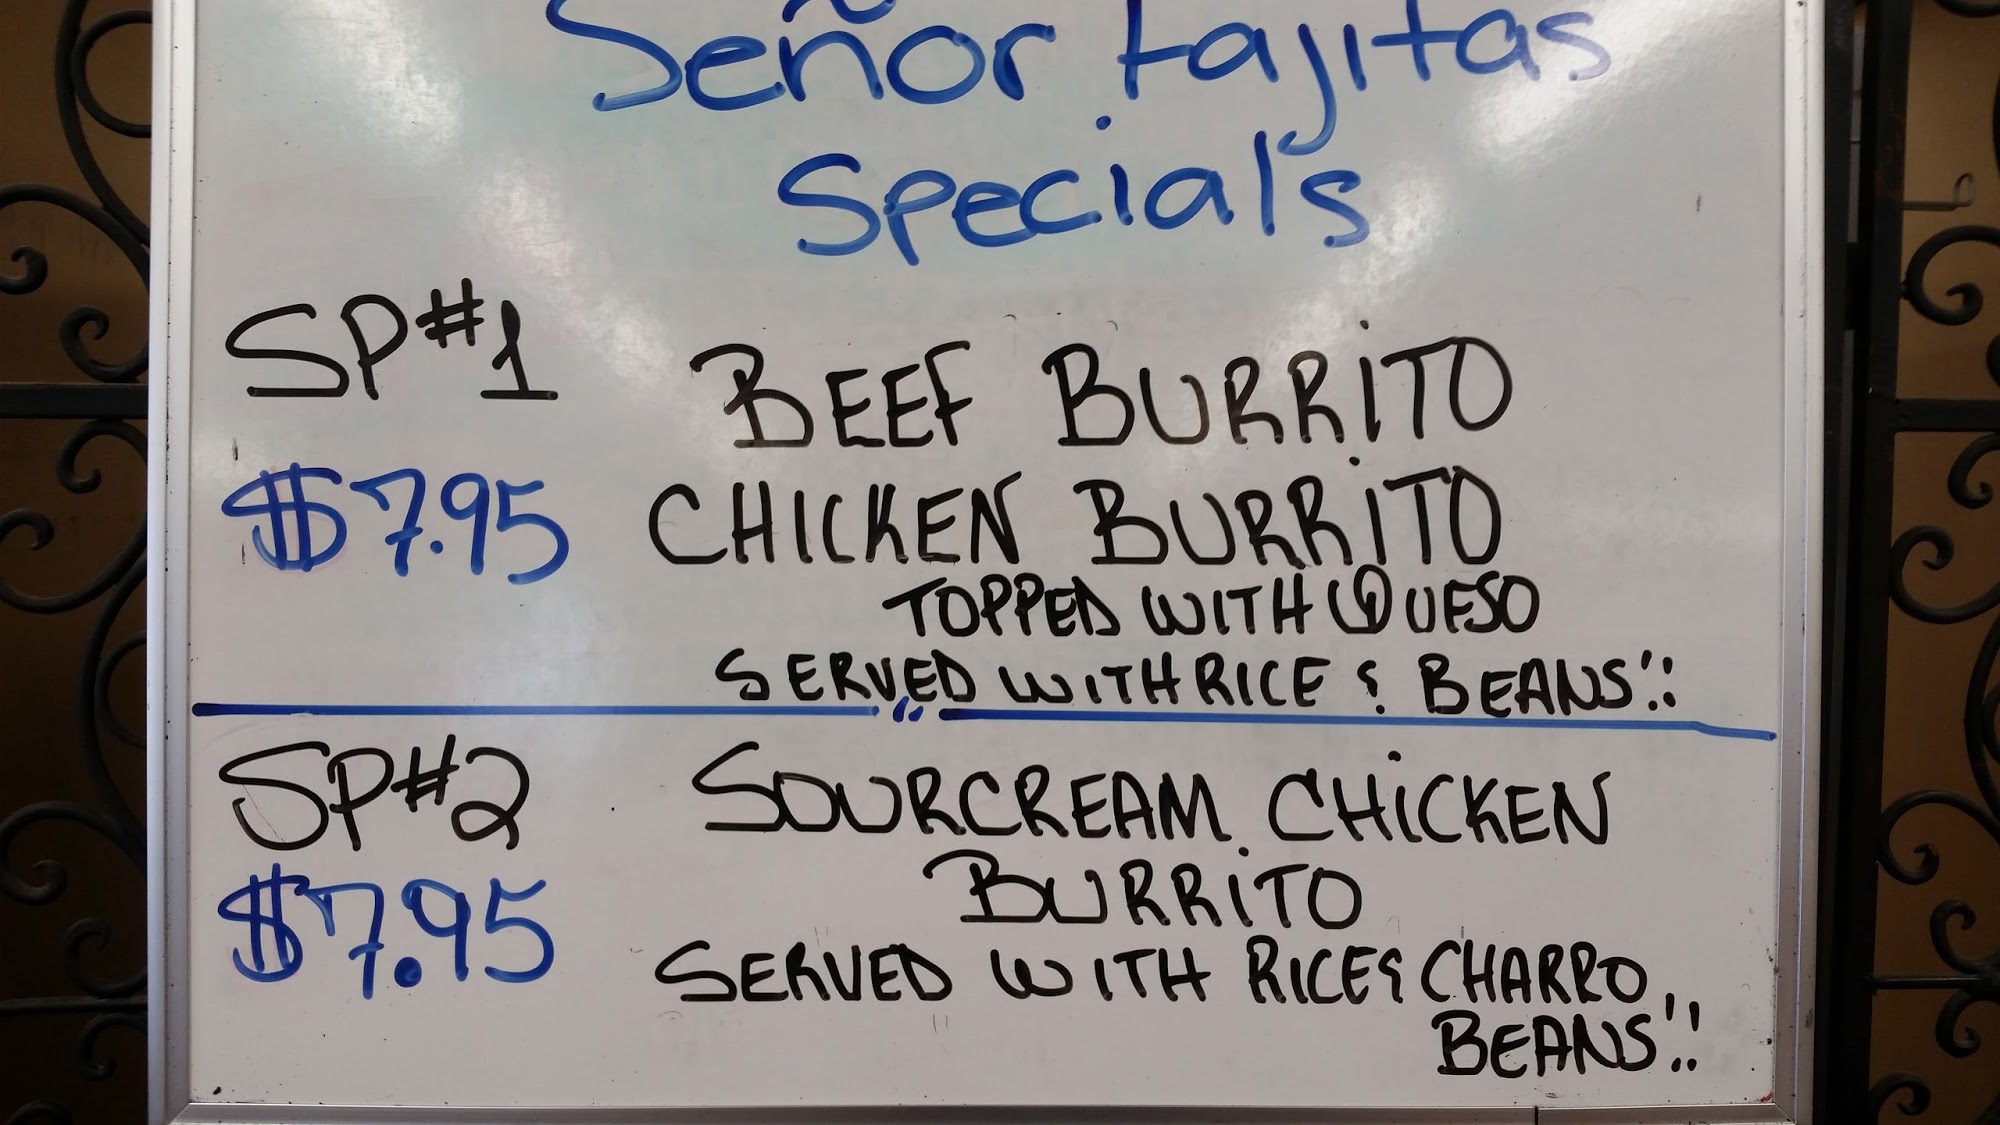 Señor fajitas
Specials
SP#1
BEEF BURRITO
$7.95
CHICKEN BURRITO
TOPPED WITH QUESO
SERVED WITH RICE & BEANS!!
SP#2
SOURCREAM CHICKEN
BURRITO
$7.95
SERVED WITH RICE & CHARRO
BEANS!!